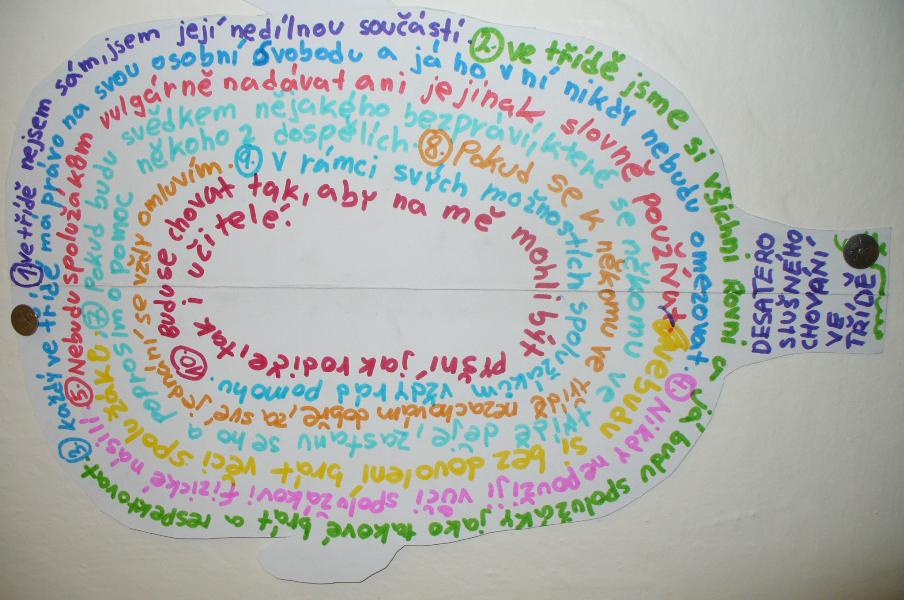 DESATERO
SLUŠNÉHO
CHOVÁNÍ
VE
TŘÍDĚ
1. ve třídě nejsem sám, jsem její nedílnou součástí.
2. ve třídě jsme si všichni rovni a já budu spolužáky jako takové brát a respektovat.
3. každý ve třídě má právo na svou osobní svobodu a já ho v ní nikdy nebudu omezovat.
4. Nikdy nepoužiji vůči spolužákovi fizické násilí.
5. Nebudu spolužákům vulgárně nadávat ani je jinak slovně
Nebudu si bez dovolení brát věci spolužáků
7. Pokud budu svědkem nějakého bezpráví, které se někomu ve třídě děje, zastanu se ho a poprosím o pomoc někoho z dospělích.
8. Pokud se k někomu ve třídě nezachovám dobře, za své jednání, se vždy omluvím.
9. V rámci svých možnostích spolužákům vždy rád pomohu.
10. Budu se chovat tak, aby na mě mohli být pyšní jak rodiče, tak i učitelé!